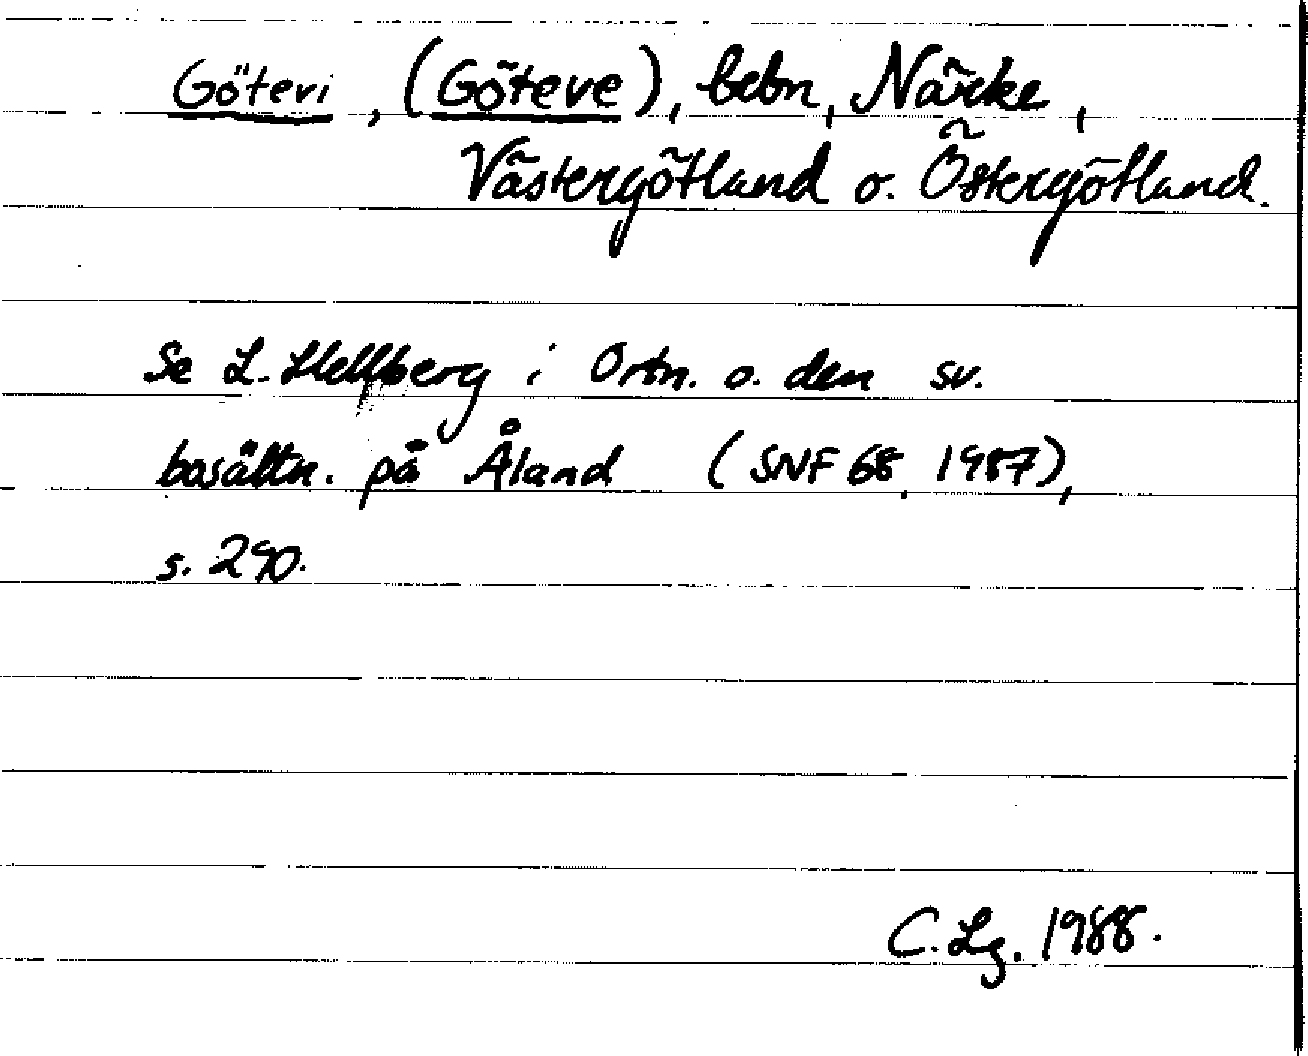 Göteri, (Göteve), bebn, Närke,
Västergötland o. Östergötland.
Se L. Hellberg i Ortn. o. den sv.
bosättn. på Åland (SNF 68, 1987),
s. 290.
C. Lg. 1988.